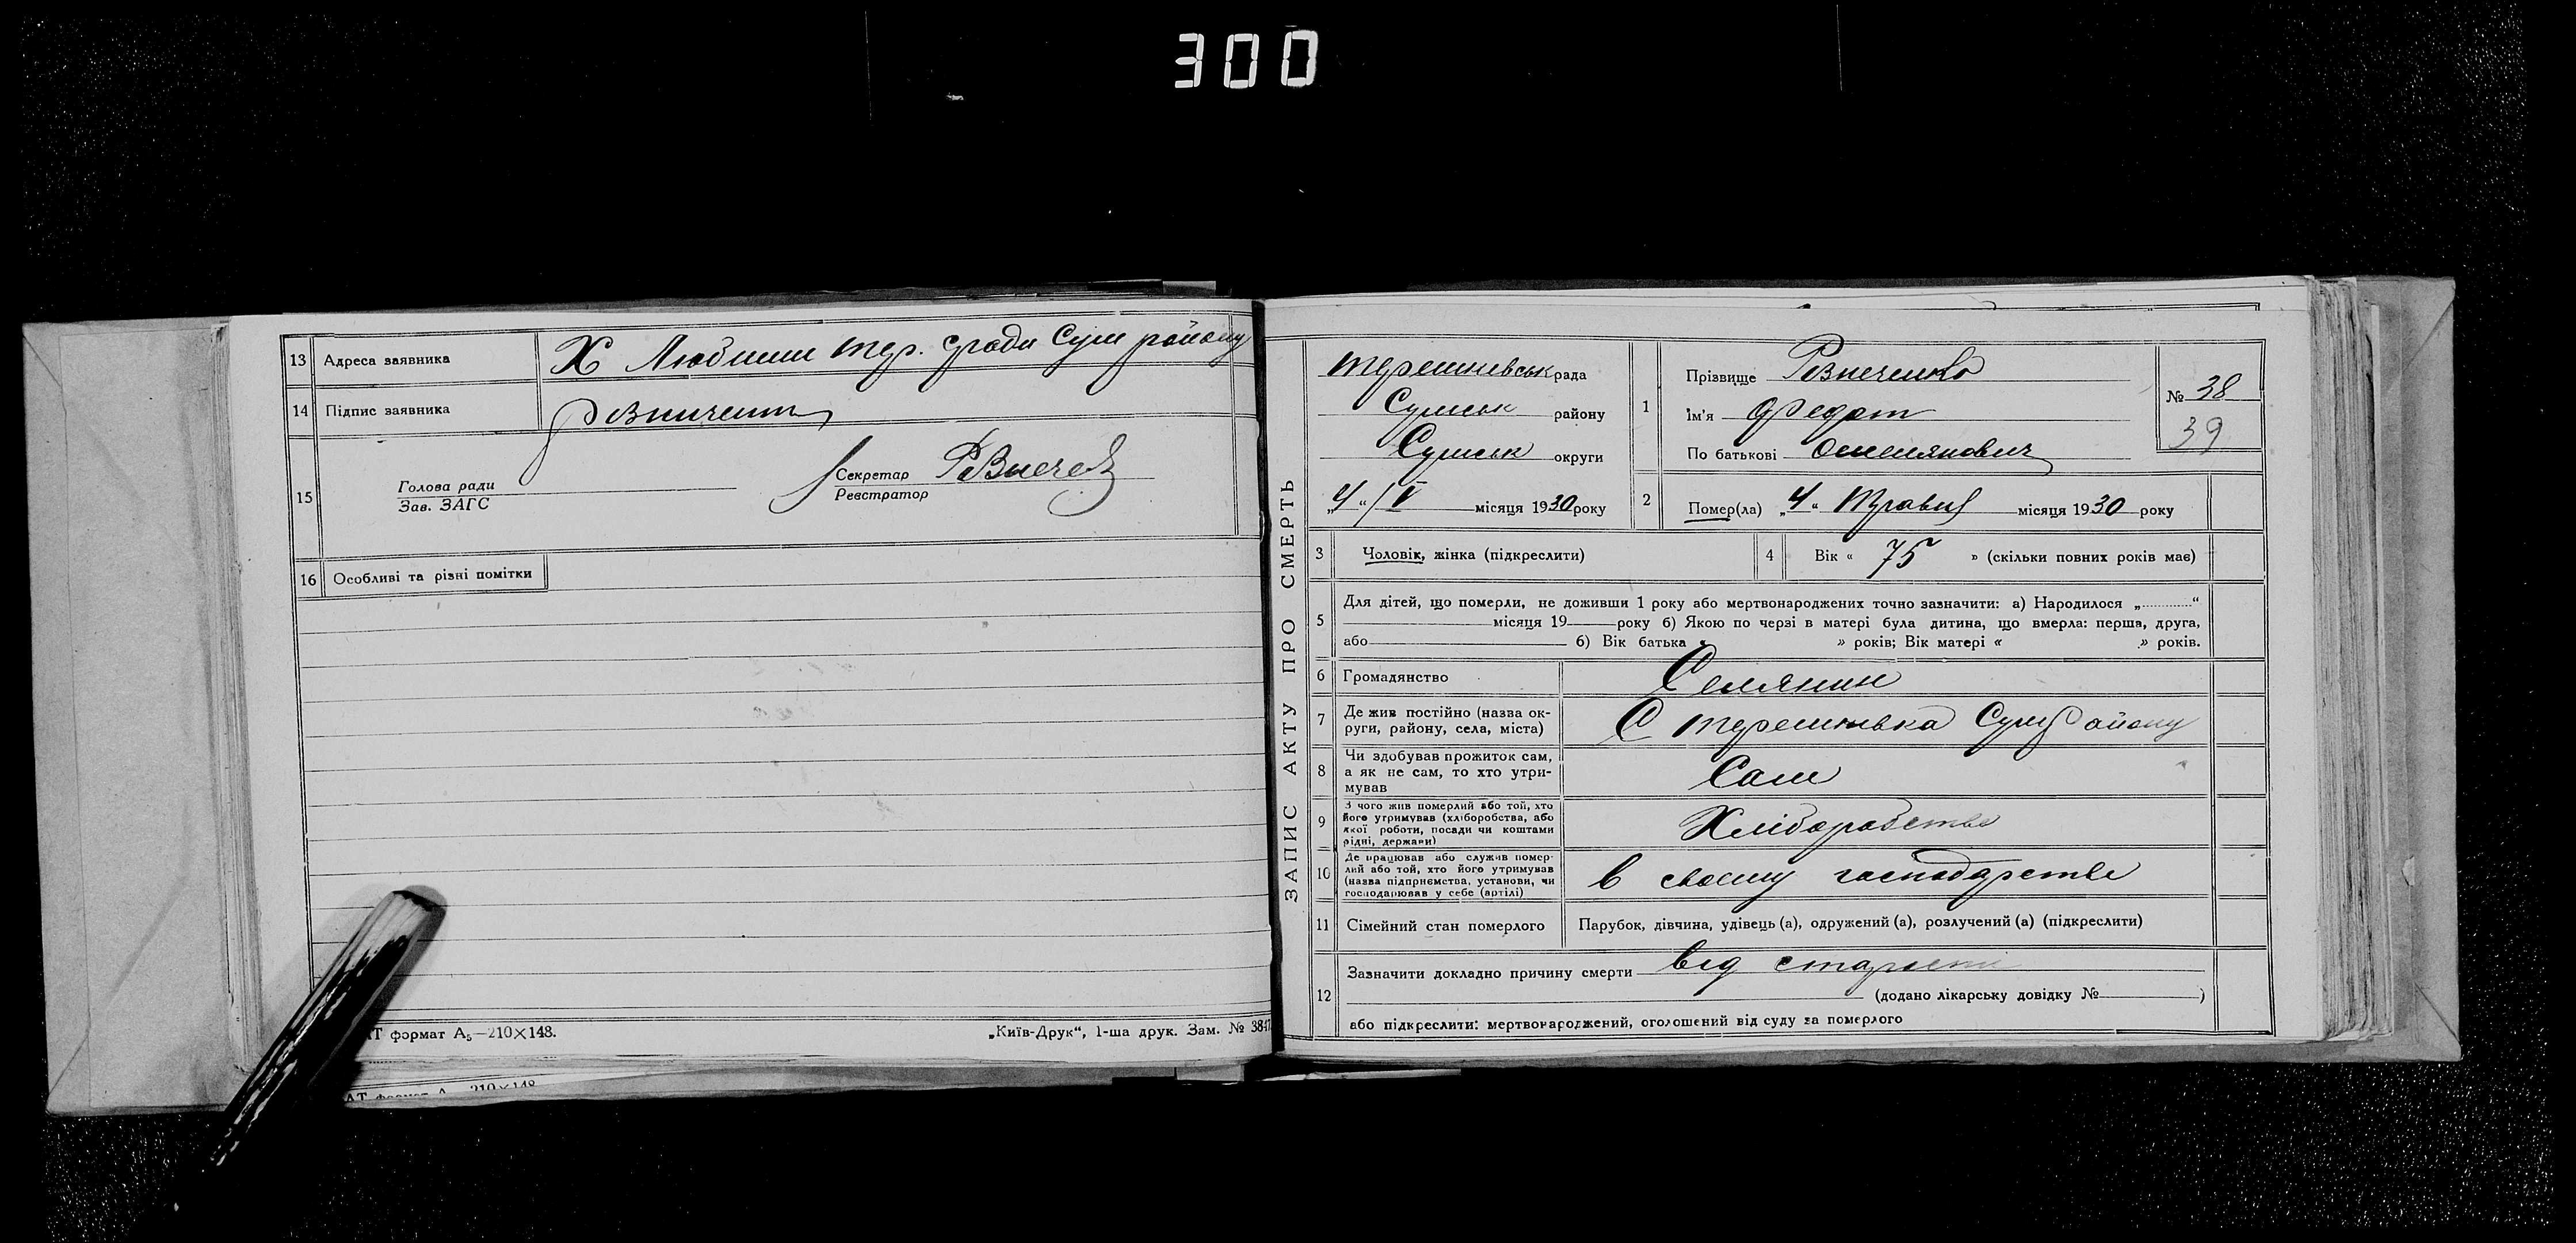 300
13 Адреса заявника Х Любиши тер. сради Сум району
14 Підпис заявника
15 Голова ради
Зав. ЗАГС
Секретар
Реєстратор
16 Особливі та різні помітки
АТ формат А₅—210×148.
„Київ-Друк“, 1-ша друк. Зам. № 3847
АТ формат А 210×148
ЗАПИС АКТУ ПРО СМЕРТЬ
Терешківськ рада
Сумськ району
Сумськ округи
„4“ / V місяця 1930 року
1 Прізвище Рєзнеченко
Ім'я Федот
По батькові Омелянович
№ 38
39
2 Помер(ла) „4“ Травня місяця 1930 року
3 Чоловік, жінка (підкреслити)
4 Вік « 75 » (скільки повних років має)
5 Для дітей, що померли, не доживши 1 року або мертвонароджених точно зазначити: а) Народилося „............“
місяця 19 року б) Якою по черзі в матері була дитина, що вмерла: перша, друга,
або б) Вік батька « » років; Вік матері « » років.
6 Громадянство Селянин
7 Де жив постійно (назва ок-
руги, району, села, міста) С Терешківка Сум Району
8 Чи здобував прожиток сам,
а як не сам, то хто утри-
мував Сам
9 З чого жив померлий або той, хто
його утримував (хліборобства, або
якої роботи, посади чи коштами
рідні, держави) Хліборобство
10 Де працював або служив помер-
лий або той, хто його утримував
(назва підприємства, установи, чи
господарював у себе (артілі) в своєму господарстве
11 Сімейний стан померлого Парубок, дівчина, удівець (а), одружений (а), розлучений (а) (підкреслити)
12 Зазначити докладно причину смерти від старости
(додано лікарську довідку № )
або підкреслити: мертвонароджений, оголошений від суду за померлого